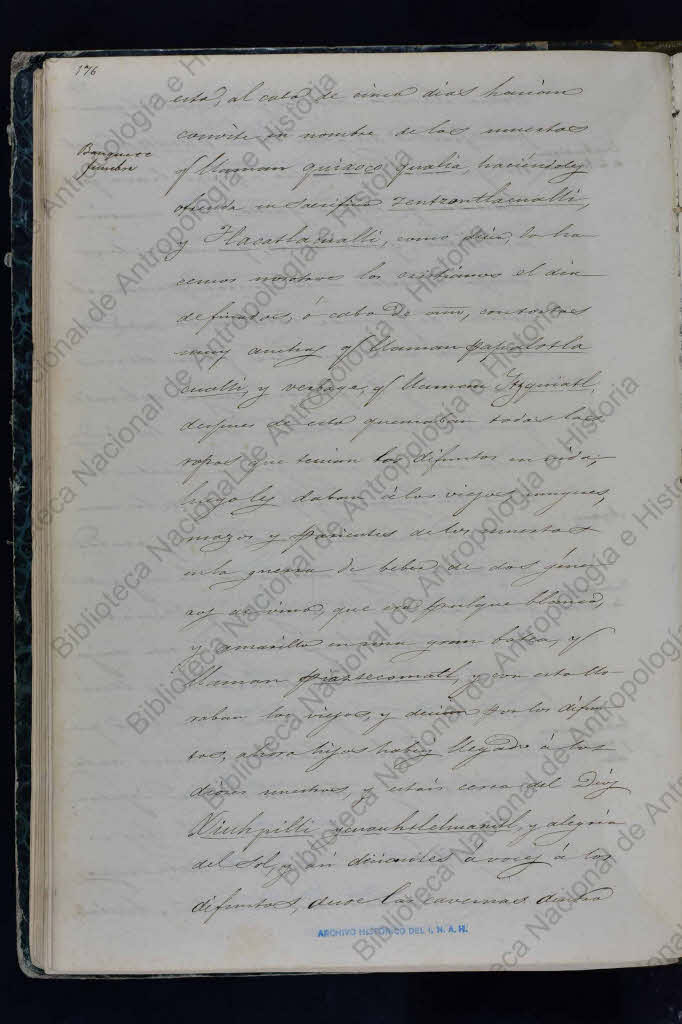 176
esto, al cabo de cinco dias hacian
convite en nombre de los muertos
Banquete
funebre
q̃ llaman quixoco qualia, haciendoles
ofrenda en sacrificio Zentzontlacualli,
y Tlacatlacualli, como dicen, lo ha
cemos nosotros los cristianos el dia
de finados, ó cabo de año, con tortas
muy anchas q̃ llaman papalotla
cualli, y verbage, q̃ llaman Itzquiatl,
despues de esto quemaban todas las
ropas que tenian los difuntos en vida,
luego les daban á los viejos
mozos y parientes de los muertos
en la guerra de beber de dos géne
ros de vino, que era pulque blanco,
y amarillo en una gran batea, q̃
llaman piaztecomatl, y con esto llo
raban los viejos, y decian por los difun
tos, ahora hijos habeis llegado á los
dioses vuestros, y estais cerca del Dios
Xiuhpilli y alegria
del Sol, y asi á voces á los
difuntos, desde las cavernas dentro
ARCHIVO HISTÓRICO DEL I. N. A. H.
Biblioteca Nacional de Antropología e Historia